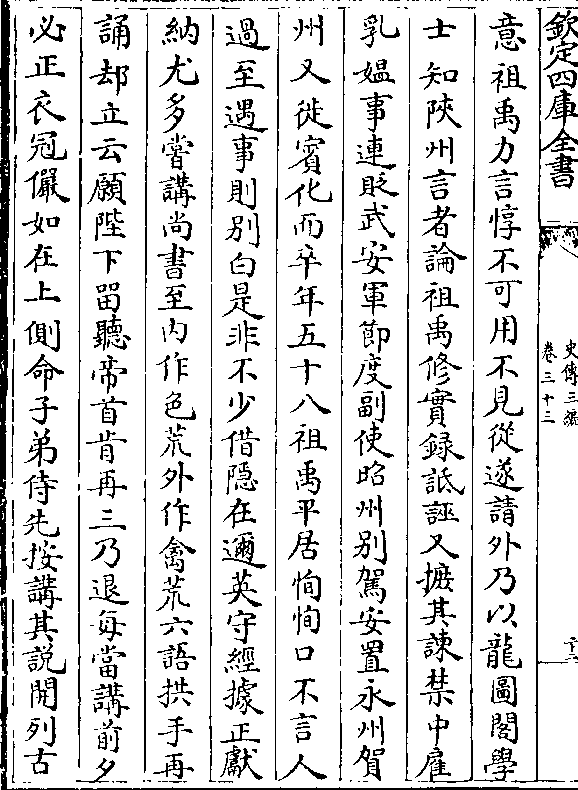 欽定四庫全書
史傳三編
卷三十三
意祖禹力言惇不可用不見從遂請外乃以龍圖閣學
士知陝州言者論祖禹修實録詆誣又摭其諫禁中雇
乳媪事連貶武安軍節度副使昭州别駕安置永州賀
州又徙賓化而卒年五十八祖禹平居恂恂口不言人
過至遇事則别白是非不少借隱在邇英守經據正獻
納尤多嘗講尚書至内作色荒外作禽荒六語拱手再
誦却立云願陛下留聽帝首肯再三乃退每當講前夕
必正衣冠儼如在上側命子弟侍先按講其説開列古